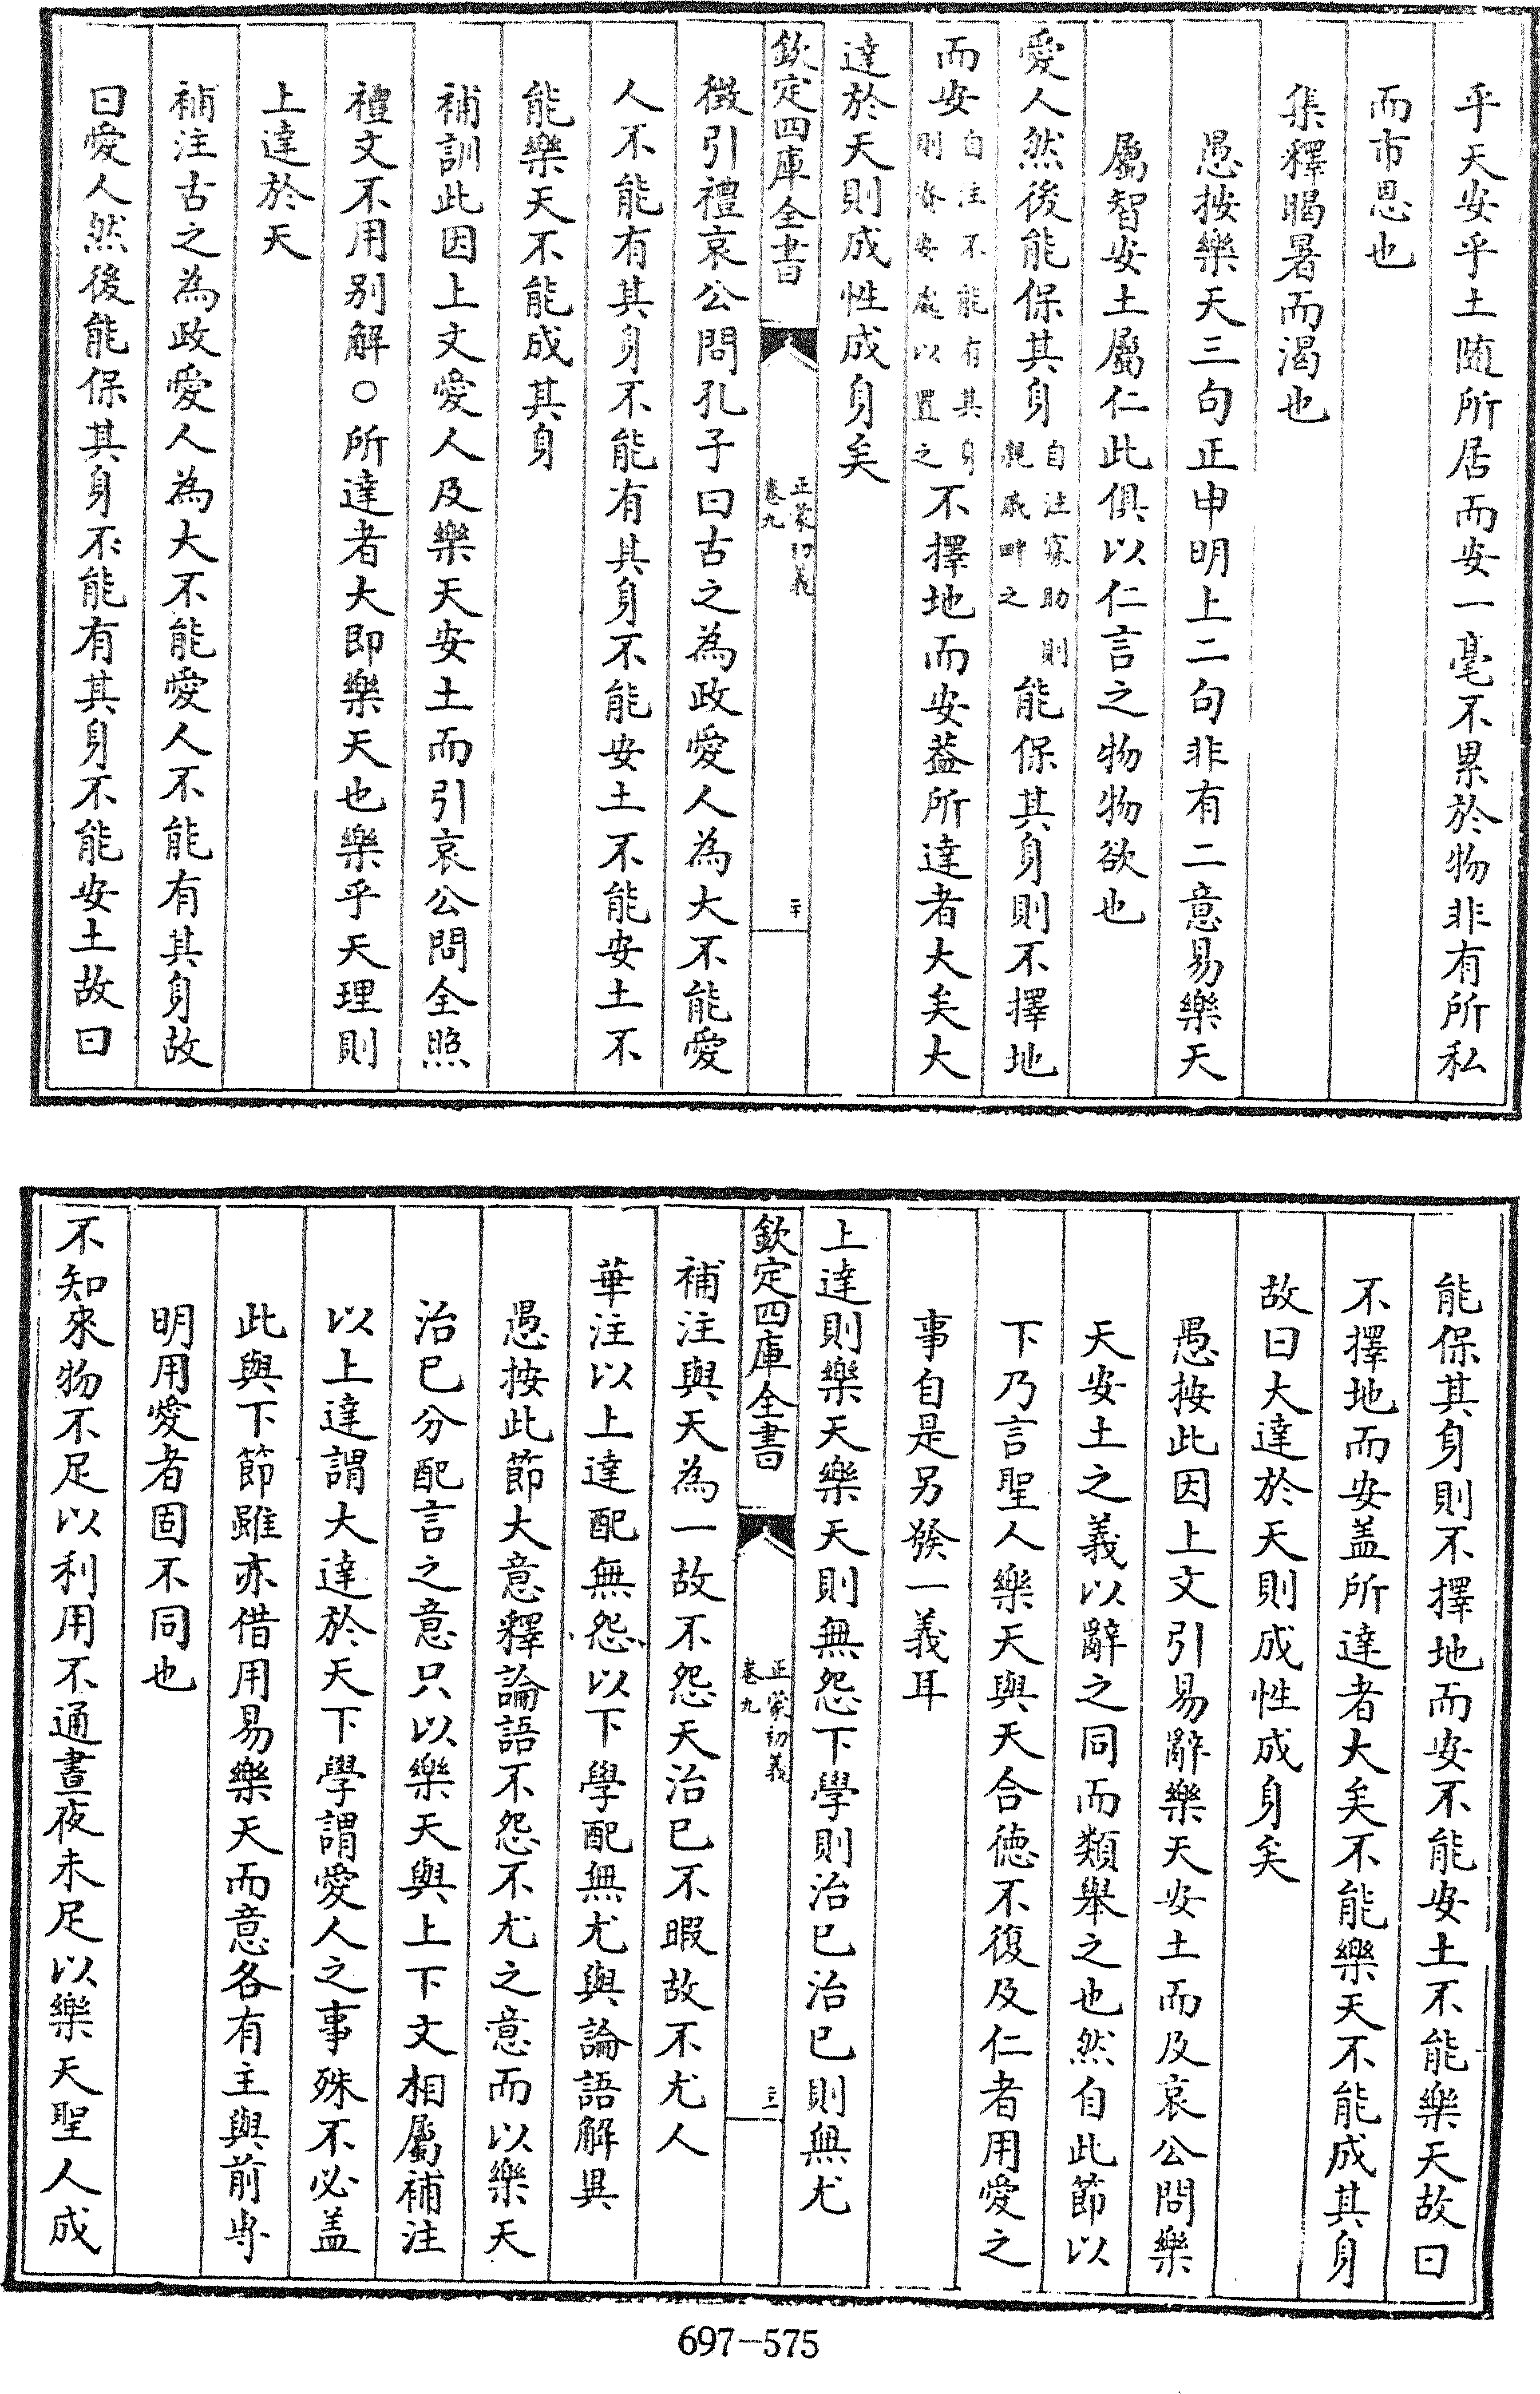 乎天安乎土随所居而安一毫不累於物非有所私
而市恩也
集釋暍暑而渴也
愚按樂天三句正申明上二句非有二意易樂天
屬智安土屬仁此俱以仁言之物物欲也
愛人然後能保其身自注寡助則親戚畔之能保其身則不擇地
而安自注不能有其身則資安處以置之不擇地而安葢所達者大矣大
達於天則成性成身矣
欽定四庫全書
正蒙初義
卷九
二十
徵引禮哀公問孔子曰古之為政愛人為大不能愛
人不能有其身不能有其身不能安土不能安土不
能樂天不能成其身
補訓此因上文愛人及樂天安土而引哀公問全照
禮文不用别解○所達者大即樂天也樂乎天理則
上達於天
補注古之為政愛人為大不能愛人不能有其身故
曰愛人然後能保其身不能有其身不能安土故曰
能保其身則不擇地而安不能安土不能樂天故曰
不擇地而安盖所達者大矣不能樂天不能成其身
故曰大達於天則成性成身矣
愚按此因上文引易辭樂天安土而及哀公問樂
天安土之義以辭之同而類舉之也然自此節以
下乃言聖人樂天與天合徳不復及仁者用愛之
事自是另發一義耳
上達則樂天樂天則無怨下學則治已治已則無尤
欽定四庫全書
正蒙初義
卷九
二十一
補注與天為一故不怨天治已不暇故不尤人
華注以上達配無怨以下學配無尤與論語解異
愚按此節大意釋論語不怨不尤之意而以樂天
治已分配言之意只以樂天與上下文相屬補注
以上達謂大達於天下學謂愛人之事殊不必盖
此與下節雖亦借用易樂天而意各有主與前専
明用愛者固不同也
不知來物不足以利用不通晝夜未足以樂天聖人成
697-575